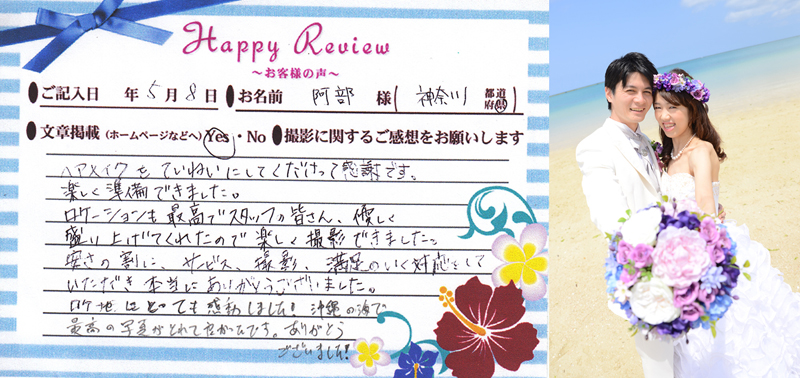 Happy Review
～お客様の声～
ご記入日 年 5月 8日 お名前 阿部 様 ( 神奈川 都道府県 )
文章掲載(ホームページなどへ) Yes・No 撮影に関するご感想をお願いします
ヘアメイクもていねいにしてくださって感謝です。
楽しく準備できました。
ロケーションも最高でスタッフの皆さん、優しく
盛り上げてくれたので楽しく撮影できました。
安さの割に、サービス、撮影、満足のいく対応をして
いただき本当にありがとうございました。
ロケ地はとっても感動しました！沖縄の海で
最高の写真がとれて良かったです。ありがとう
ございました！